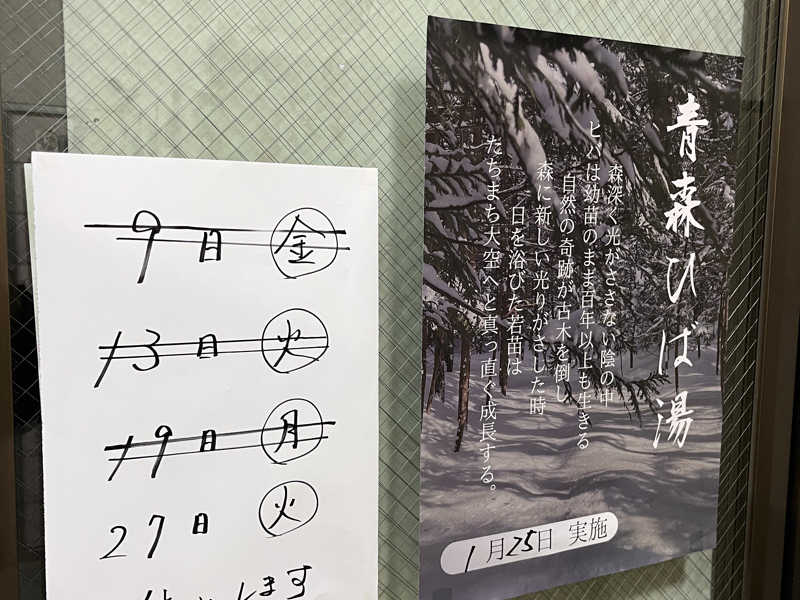 9日 金
13日 火
19日 月
27日 火
します
青森ひば湯
森深く光がささない陰の中
ヒバは幼苗のまま百年以上も生きる
自然の奇跡が古木を倒し
森に新しい光りがさした時
日を浴びた若苗は
たちまち大空へと真っ直ぐ成長する。
1月25日 実施